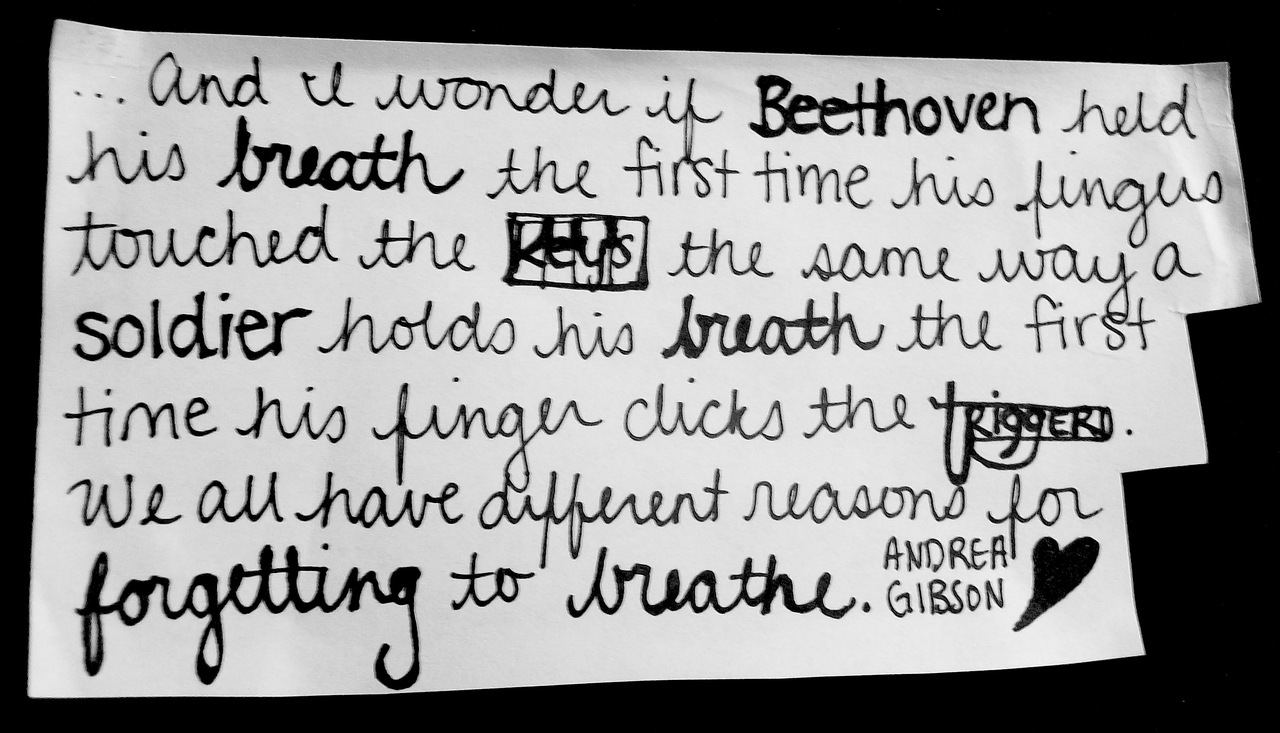 ... And I wonder if Beethoven held
his breath the first time his fingers
touched the keys the same way a
soldier holds his breath the first
time his finger clicks the TRIGGER.
We all have different reasons for
forgetting to breathe.
ANDREA
GIBSON